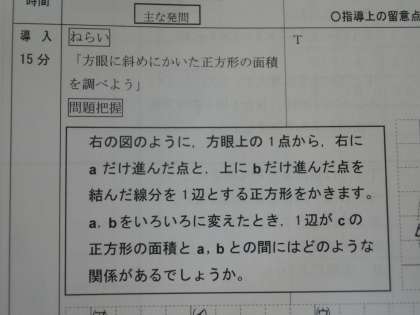 時間
主な発問
○指導上の留意点
導 入
ねらい
T
15分
「方眼に斜めにかいた正方形の面積
を調べよう」
問題把握
右の図のように，方眼上の1点から，右に
aだけ進んだ点と，上にbだけ進んだ点を
結んだ線分を1辺とする正方形をかきます。
a，bをいろいろに変えたとき，1辺がcの
正方形の面積とa，bとの間にはどのような
関係があるでしょうか。